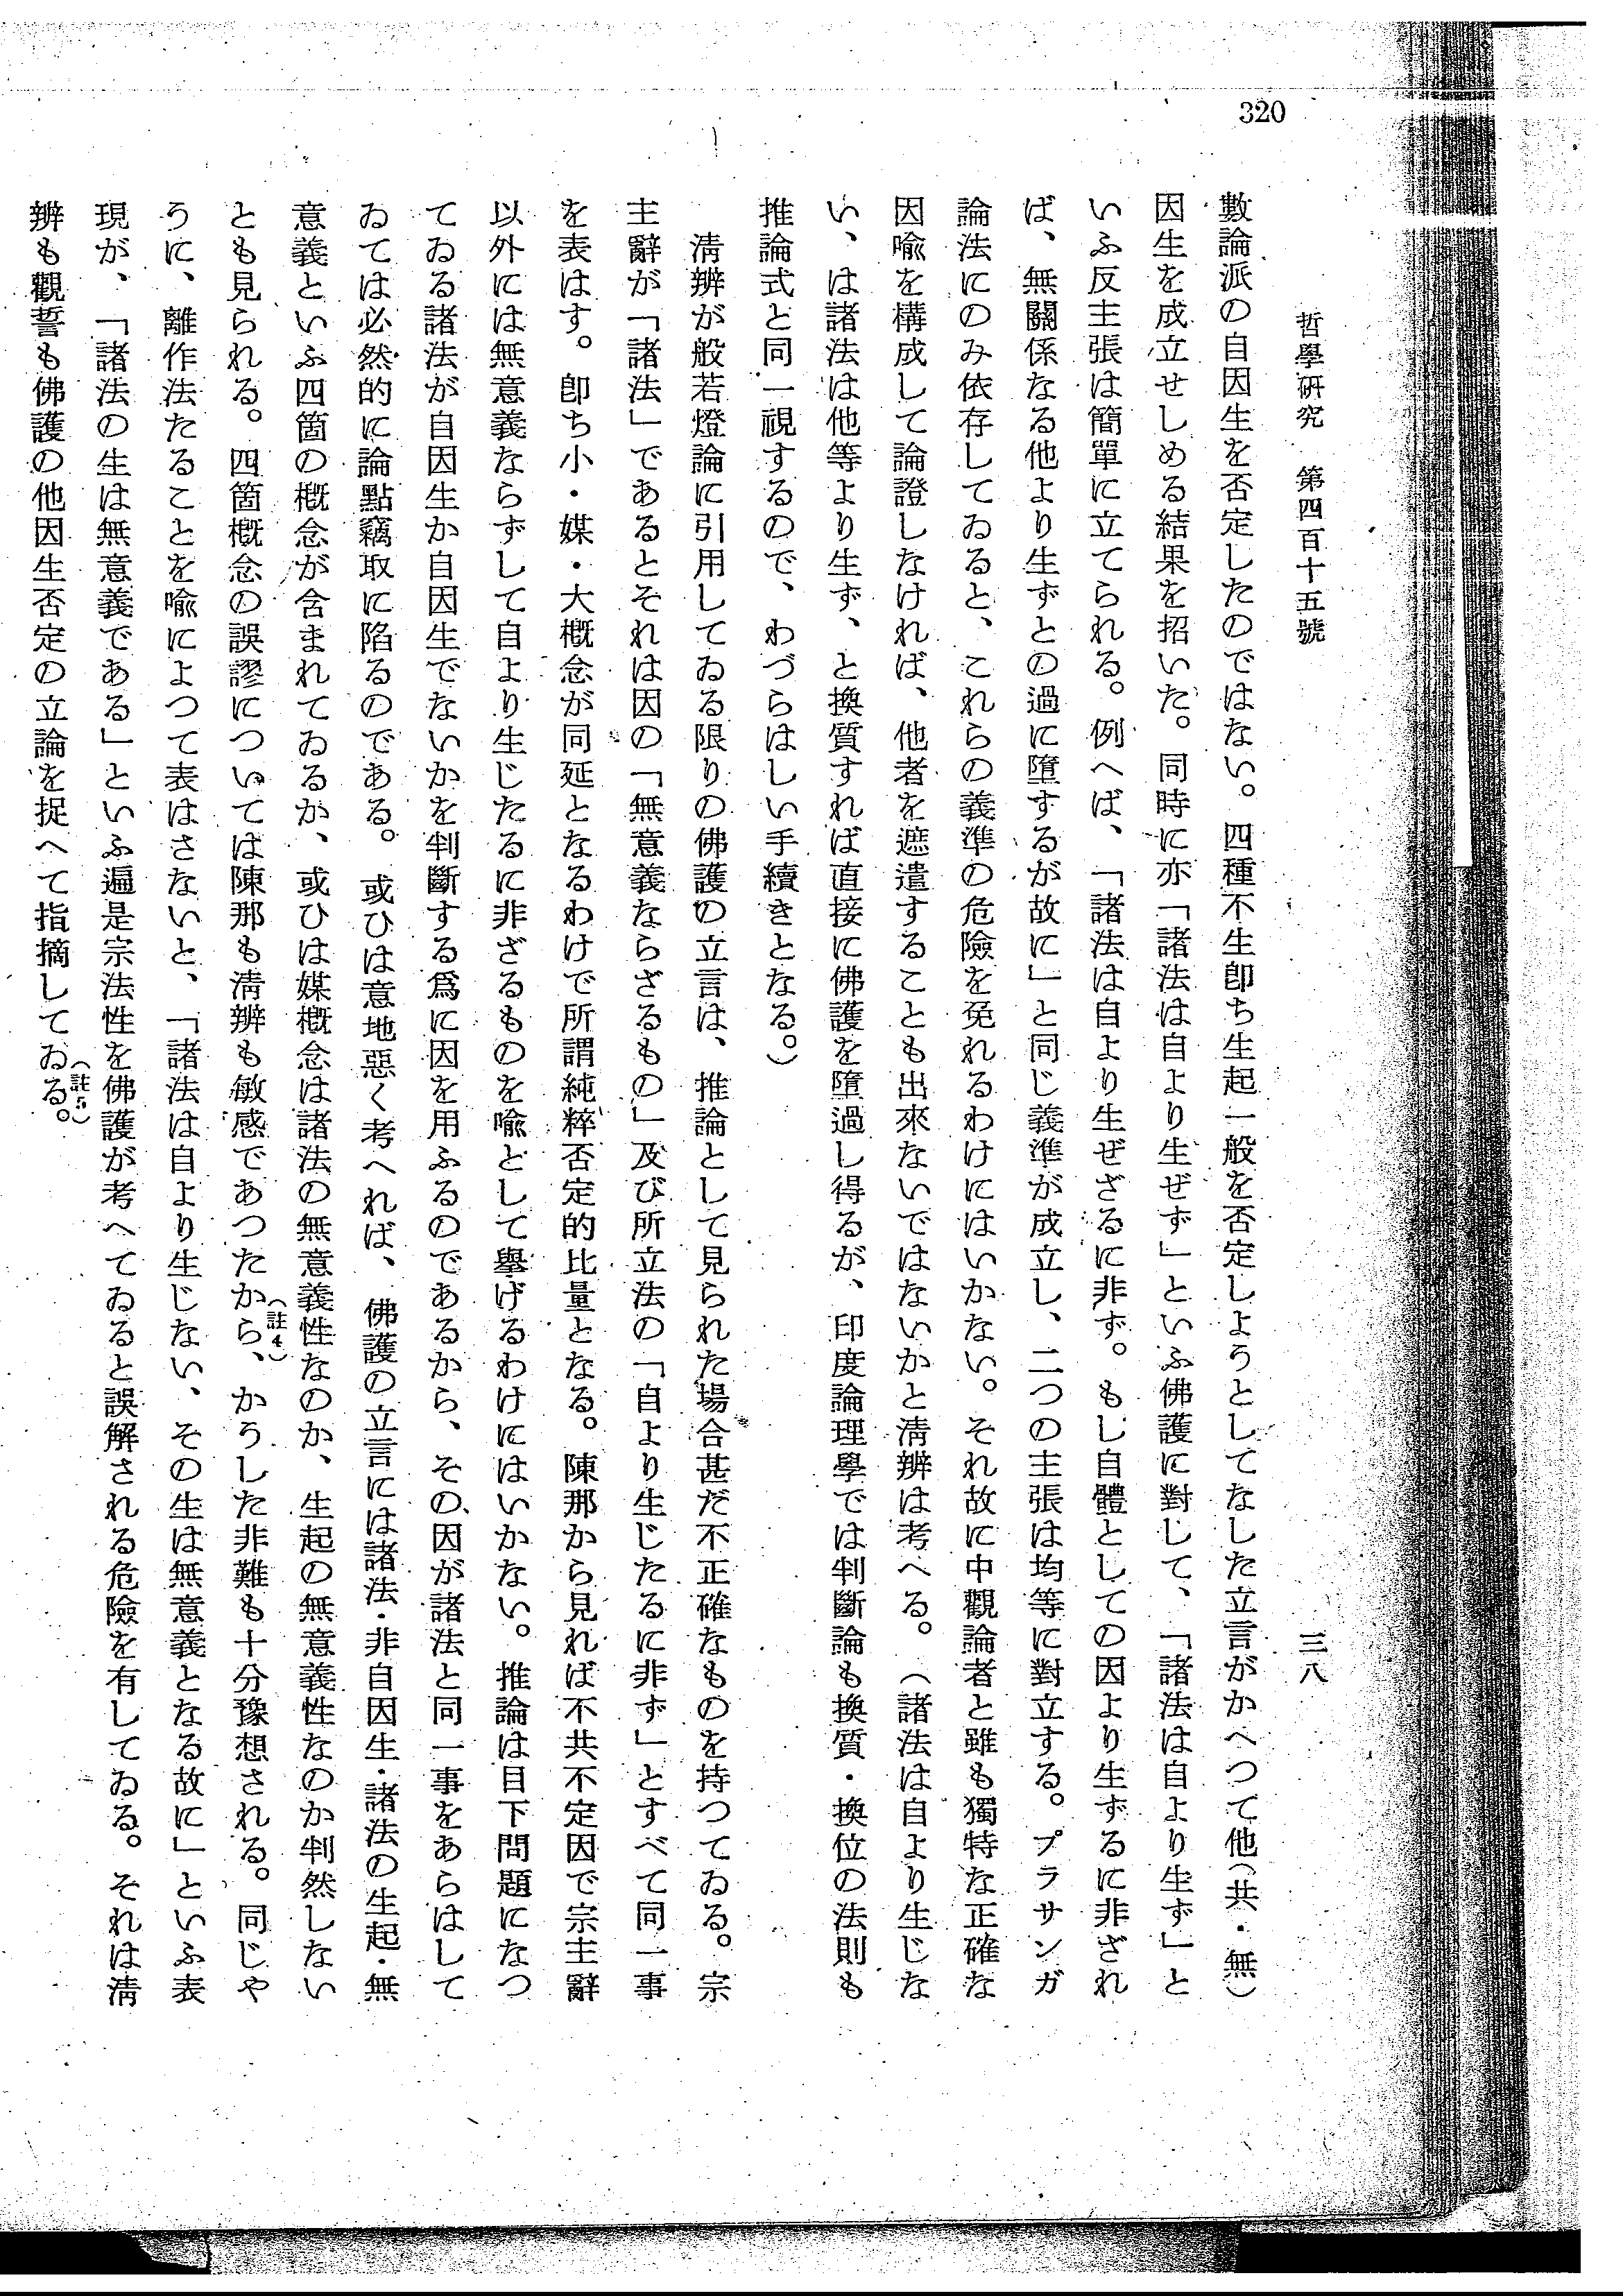 320
哲學硏究　第四百十五號　三八
數論派の自因生を否定したのではない。四種不生卽ち生起一般を否定しようとしてなした立言がかへつて他（共・無）
因生を成立せしめる結果を招いた。同時に亦「諸法は自より生ぜず」といふ佛護に對して、「諸法は自より生ず」と
いふ反主張は簡單に立てられる。例へば、「諸法は自より生ぜざるに非ず。もし自體としての因より生ずるに非ざれ
ば、無關係なる他より生ずとの過に墮するが故に」と同じ義準が成立し、二つの主張は均等に對立する。プラサンガ
論法にのみ依存してゐると、これらの義準の危險を免れるわけにはいかない。それ故に中觀論者と雖も獨特な正確な
因喩を構成して論證しなければ、他者を遮遣することも出來ないではないかと淸辨は考へる。（諸法は自より生じな
い、は諸法は他等より生ず、と換質すれば直接に佛護を墮過し得るが、印度論理學では判斷論も換質・換位の法則も
推論式と同一視するので、わづらはしい手續きとなる。）
淸辨が般若燈論に引用してゐる限りの佛護の立言は、推論として見られた場合甚だ不正確なものを持つてゐる。宗
主辭が「諸法」であるとそれは因の「無意義ならざるもの」及び所立法の「自より生じたるに非ず」とすべて同一事
を表はす。卽ち小・媒・大概念が同延となるわけで所謂純粹否定的比量となる。陳那から見れば不共不定因で宗主辭
以外には無意義ならずして自より生じたるに非ざるものを喩として擧げるわけにはいかない。推論は目下問題になつ
てゐる諸法が自因生か自因生でないかを判斷する爲に因を用ふるのであるから、その、因が諸法と同一事をあらはして
ゐては必然的に論點竊取に陷るのである。或ひは意地惡く考へれば、佛護の立言には諸法・非自因生・諸法の生起・無
意義といふ四箇の概念が含まれてゐるか、或ひは媒概念は諸法の無意義性なのか、生起の無意義性なのか判然しない
とも見られる。四箇概念の誤謬については陳那も淸辨も敏感であつたから、（註4）かうした非難も十分豫想される。同じや
うに、離作法たることを喩によつて表はさないと、「諸法は自より生じない、その生は無意義となる故に」といふ表
現が、「諸法の生は無意義である」といふ遍是宗法性を佛護が考へてゐると誤解される危險を有してゐる。それは淸
辨も觀誓も佛護の他因生否定の立論を捉へて指摘してゐる。（註5）